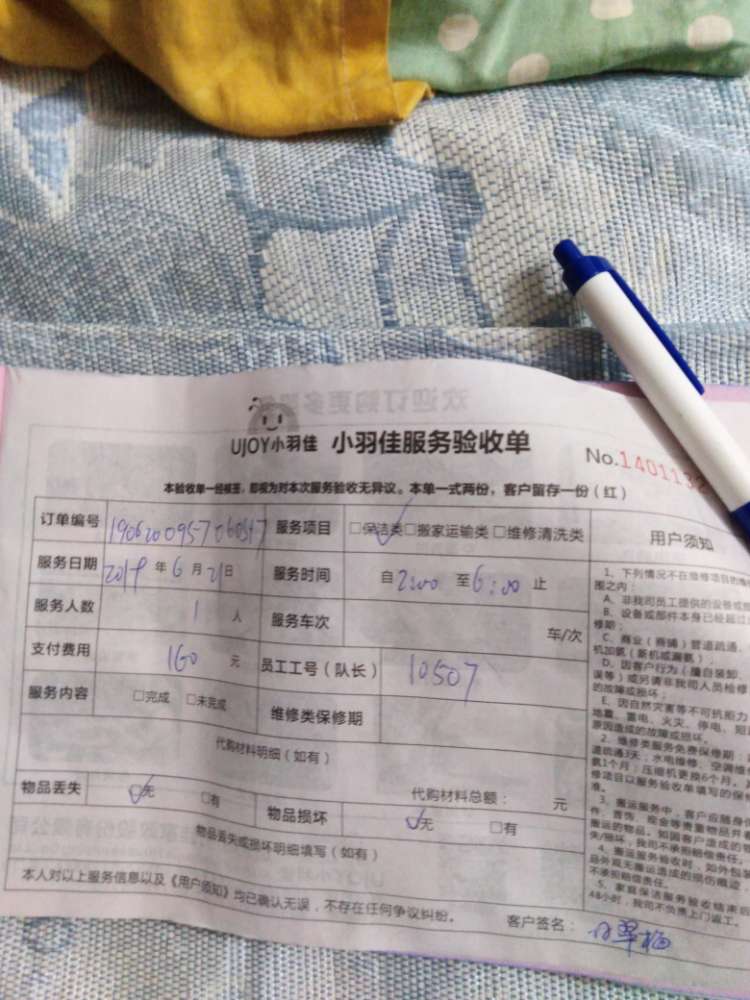 UJOY小羽佳 小羽佳服务验收单 No.1401132
本验收单一经核签,即视为对本次服务验收无异议。本单一式两份,客户留存一份(红)
订单编号 服务项目 □保洁类 □搬家运输类 □维修清洗类
服务日期 2019 年 6 月 21 日 服务时间 自 2:00 至 6:00 止
服务人数 1 人 服务车次 车/次
支付费用 160 元 员工工号(队长) 10507
服务内容 □完成 □未完成 维修类保修期
代购材料明细(如有)
代购材料总额: 元
物品丢失 □无 □有 物品损坏 □无 □有
物品丢失或损坏明细填写(如有)
本人对以上服务信息以及《用户须知》均已确认无误,不存在任何争议纠纷。
客户签名:
用户须知
1、下列情况不在维修项目的
围之内:
A、非我司员工提供的设备或
B、设备或部件本身已经超过
修期;
C、商业(商铺)管道疏通、
机加氨(新机或漏氨);
D、因客户行为(擅自装卸、
误等)或另请非我司人员检修
的故障或损坏;
E、因自然灾害等不可抗力
地震、雷电、火灾、停电、短
原因造成的故障或损坏。
2、维修类服务免费保修期:
道疏通3天;水电维修、空调维
氨1个月;压缩机更换6个月。
修项目以服务验收单填写的保
准。
3、搬运服务中,客户应随身
带、首饰、现金等贵重物品并
搬运的物品。如因客户造成的
失/损坏,我司不承担赔偿责任。
4、搬运服务验收时,如外包装
品外观无搬运造成的损伤痕迹
不承担赔偿责任。
5、家庭保洁服务验收结束
48小时,我司不负责上门返工。